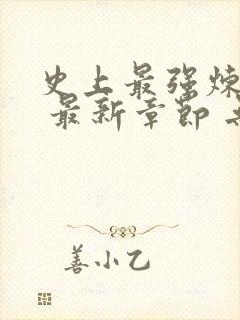 史上最强炼
最新章节
善小乙